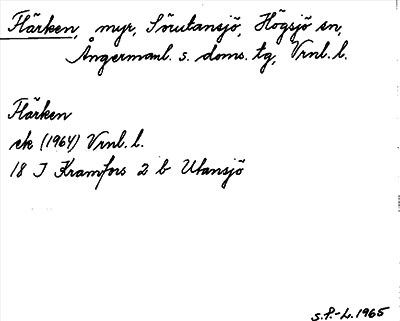 Flärken, myr, Sörutansjö, Högsjö sn,
Ångermanl. s. doms. tg, Vrnl. l.
Flärken
ek (1964) Vrnl. l.
18 J Kramfors 2 b Utansjö
S.P.-L. 1965